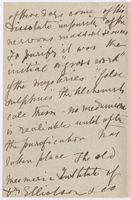 of those days some of this
dissolute impurity of the
nervous mass or sensory
to purify it was the
initial "gross work"
of the mysteries "false
sulphurs" the Alchemists
call them – no mesmerism
is realiable until after
the purification has
taken place The old
mesmeric Institute of
Dr Elliotson did